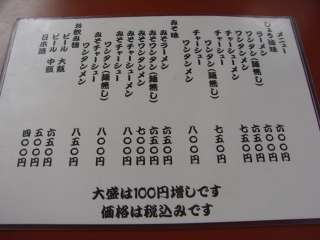 メニュー
しょう油味
ラーメン 六〇〇円
ワンタン(麺無し) 六〇〇円
ワンタンメン 六五〇円
チャーシューメン 七五〇円
チャーシュー
ワンタン(麺無し) 七五〇円
チャーシュー
ワンタンメン 八〇〇円
みそ味
みそラーメン 六五〇円
みそワンタン(麺無し) 六五〇円
みそワンタンメン 七〇〇円
みそチャーシュー 八〇〇円
みそチャーシュー
ワンタン(麺無し) 八〇〇円
みそチャーシュー
ワンタンメン 八五〇円
お飲み物
ビール 大瓶 六五〇円
ビール 中瓶 五〇〇円
日本酒 四〇〇円
大盛は100円増しです
価格は税込みです